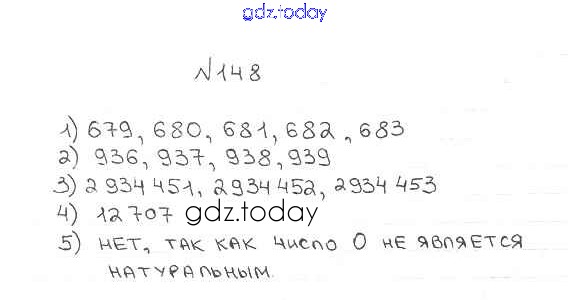 gdz.today
№148
1) 679, 680, 681, 682, 683
2) 936, 937, 938, 939
3) 2 934 451, 2934 452, 2934 453
4) 12 707
gdz.today
5) НЕТ, ТАК КАК ЧИСЛО 0 НЕ ЯВЛЯЕТСЯ
НАТУРАЛЬНЫМ.